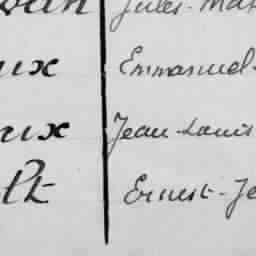 Jules-Mat
ux Emmanuel-
ux Jean-Louis
lt Ernest-Je